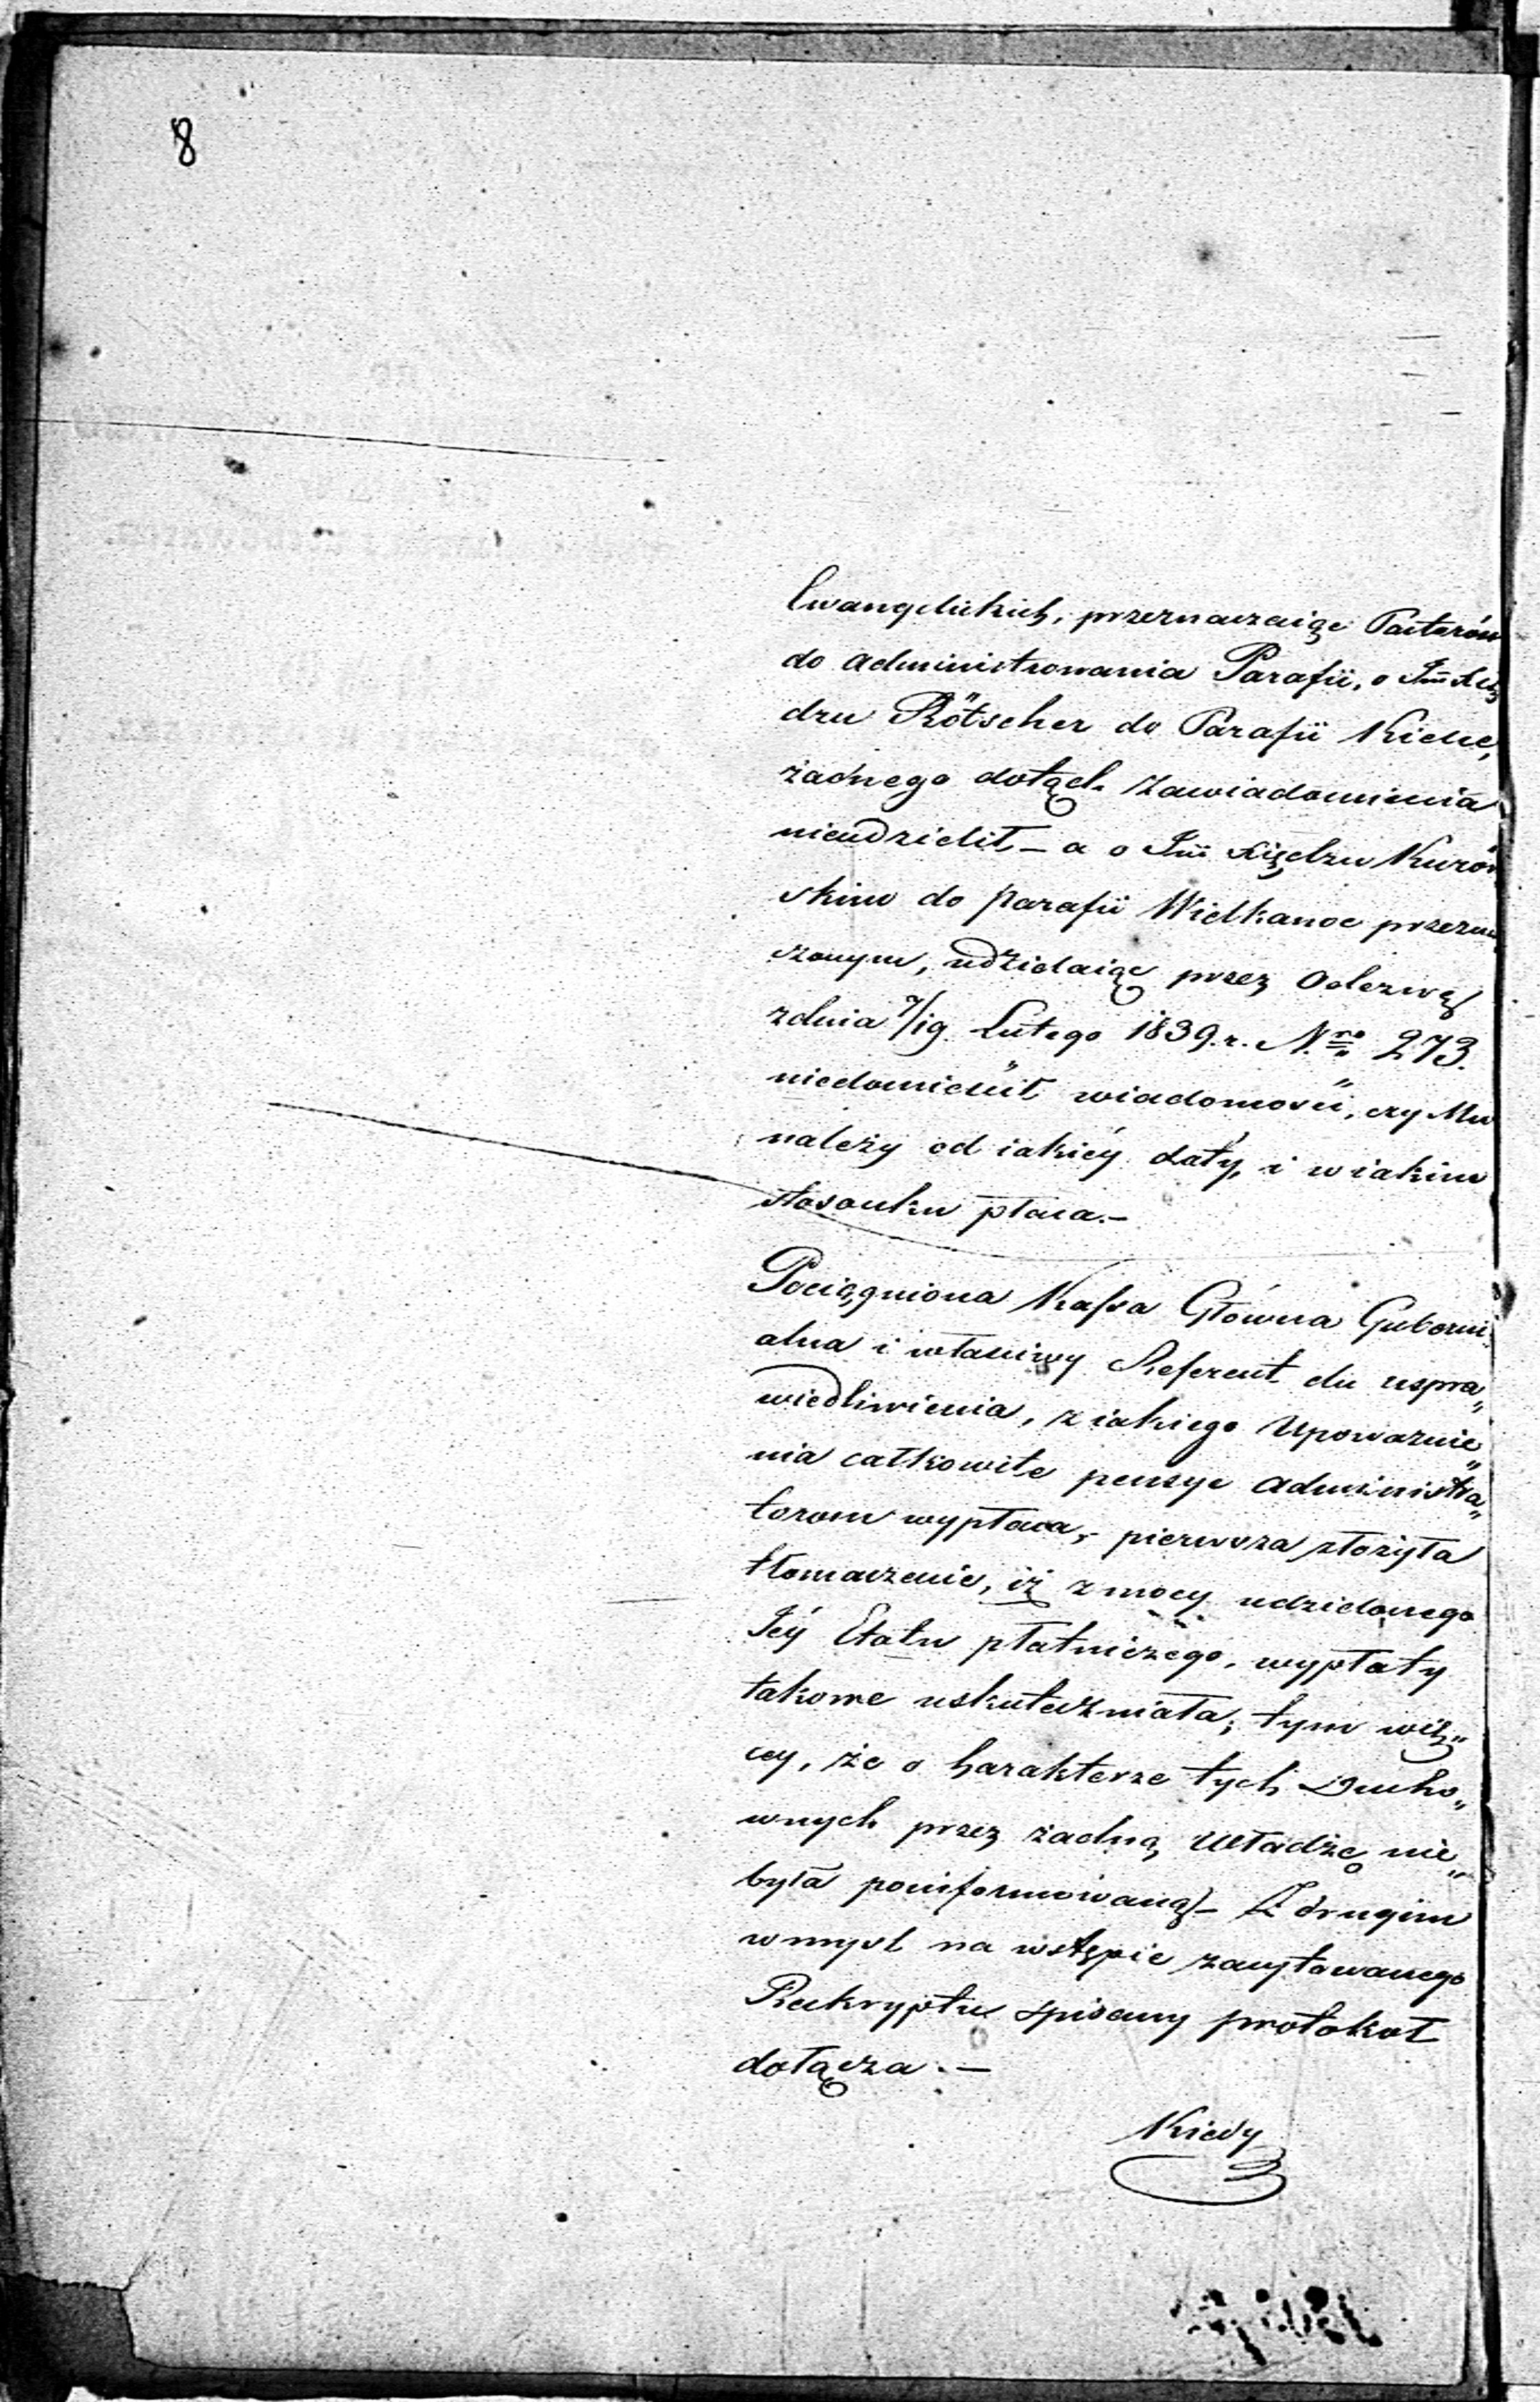 8
Ewangelickich, przeznaczaiąc Pastorów
do administrowania Parafii, o Jm Xię
dzu Rötscher do Parafii Kielce,
żadnego dotąd zawiadomienia
nieudzielił – a o Jm Xiędzu Kurow
skim do parafii Wielkanoc przezna
czonym, udzielaiąc przez Odezwę
z dnia 7/19 Lutego 1839. r. Nro 273.
niedomieścił wiadomości, czy Mu
należy od iakiéy daty, i w iakim
stosunku płaca. –
Pociągniona Kassa Główna Guberni
alna i właściwy Referent do uspra„
wiedliwienia, z iakiego Upoważnie„
nia całkowite pensye administra„
torom wypłaca, – pierwsza złożyła
tłomaczenie, iż z mocy udzielonego
Jéy Etatu płatniczego, wypłaty
takowe uskuteczniała; tym wię„
cy, że o harakterze tych Ducho„
wnych przez żadną Władzę nie„
była poinformowaną – Z drugim
w myśl na wstępie zacytowanego
Reskryptu spisany protokoł
dołącza. –
Kiedy